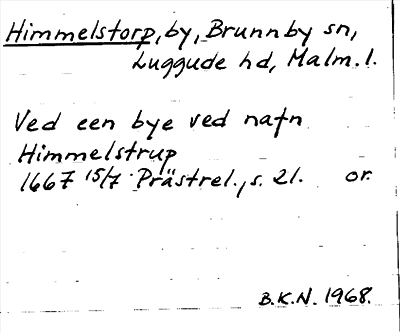 Himmelstorp, by, Brunnby sn,
Luggude hd, Malm. l.
Ved een bye ved nafn
Himmelstrup
1667 15/7 Prästrel., s. 21. or.
B.K.N. 1968.